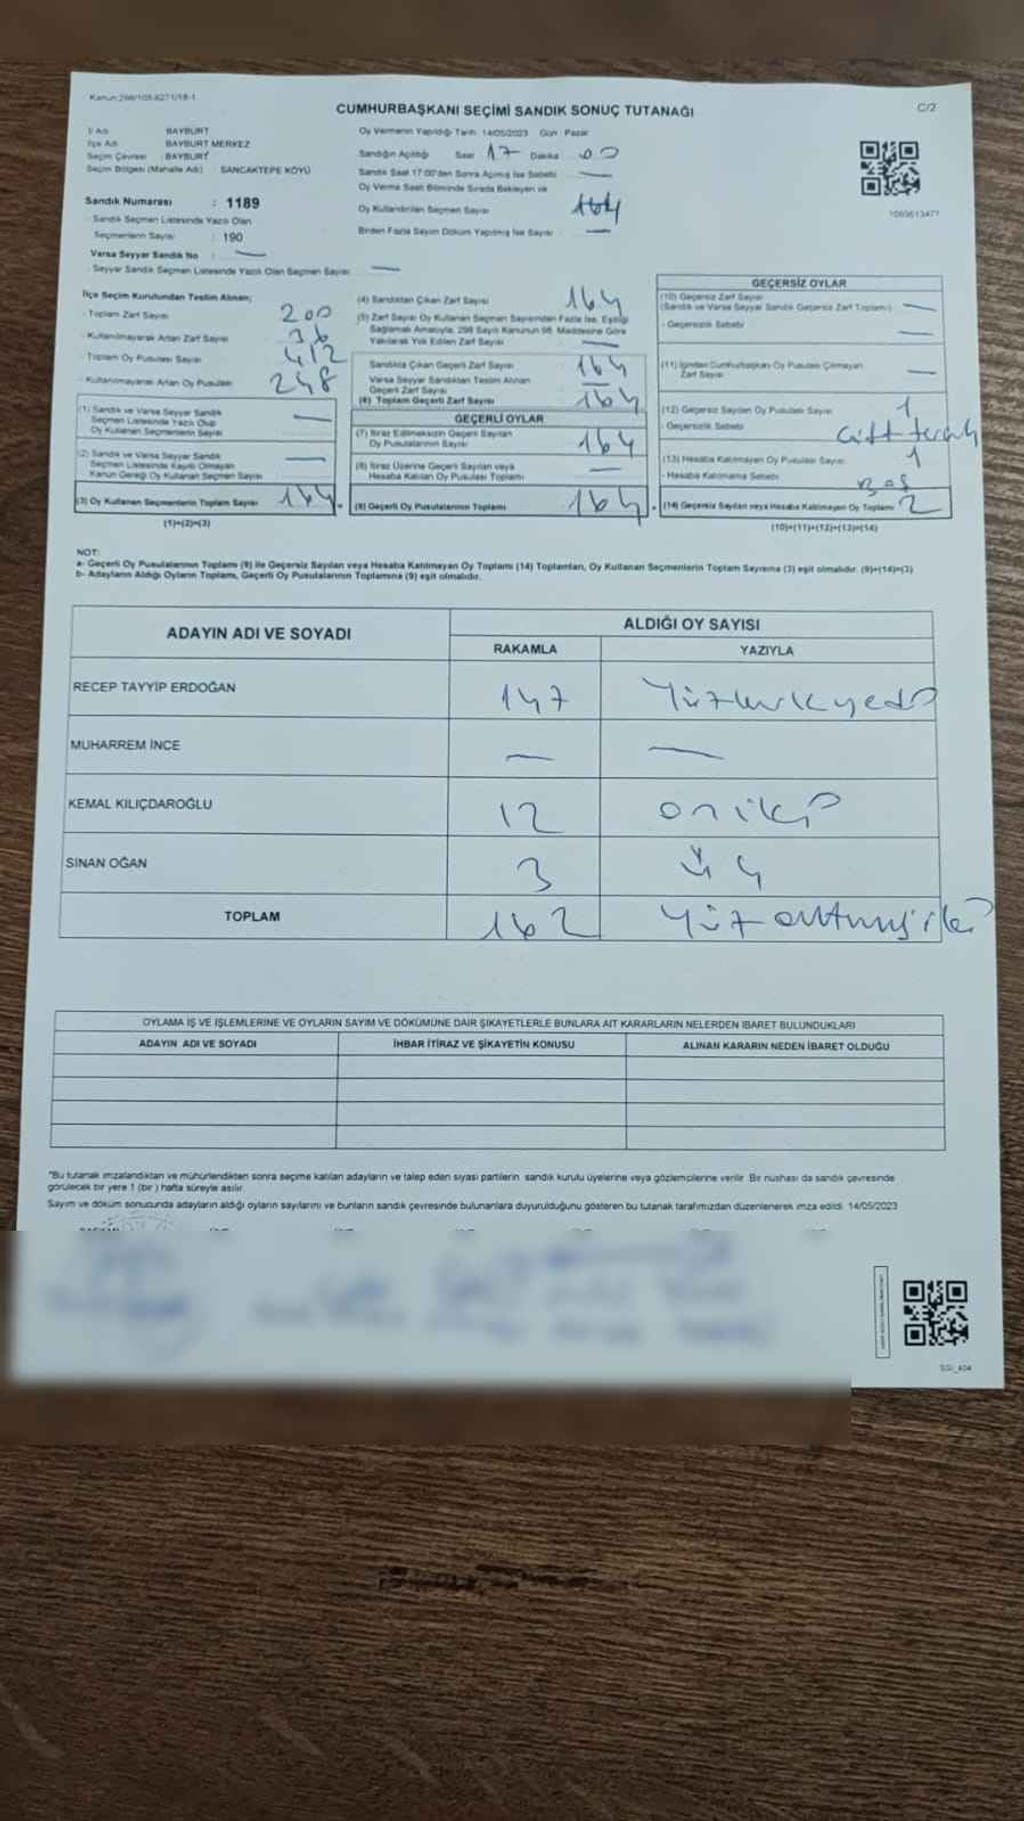 Kanun:298/105-6271/18-1
CUMHURBAŞKANI SEÇİMİ SANDIK SONUÇ TUTANAĞI
C/2
İl Adı BAYBURT
İlçe Adı BAYBURT MERKEZ
Seçim Çevresi BAYBURT
Seçim Bölgesi (Mahalle Adı) SANCAKTEPE KÖYÜ
Sandık Numarası : 1189
Sandık Seçmen Listesinde Yazılı Olan
Seçmenlerin Sayısı : 190
Varsa Seyyar Sandık No : —
Seyyar Sandık Seçmen Listesinde Yazılı Olan Seçmen Sayısı —
Oy Vermenin Yapıldığı Tarih 14/05/2023 Gün : Pazar
Sandığın Açıldığı Saat 17 Dakika 00
Sandık Saat 17:00'den Sonra Açılmış İse Sebebi —
Oy Verme Saati Bitiminde Sırada Bekleyen ve
Oy Kullandırılan Seçmen Sayısı 164
Birden Fazla Sayım Döküm Yapılmış İse Sayısı —
1093613477
İlçe Seçim Kurulundan Teslim Alınan;
- Toplam Zarf Sayısı 200
- Kullanılmayarak Artan Zarf Sayısı 36
Toplam Oy Pusulası Sayısı 412
- Kullanılmayarak Artan Oy Pusulası 248
(1) Sandık ve Varsa Seyyar Sandık
Seçmen Listesinde Yazılı Olup
Oy Kullanan Seçmenlerin Sayısı —
(2) Sandık ve Varsa Seyyar Sandık
Seçmen Listesinde Kayıtlı Olmayan
Kanun Gereği Oy Kullanan Seçmen Sayısı —
(3) Oy Kullanan Seçmenlerin Toplam Sayısı 164
(1)+(2)=(3)
(4) Sandıktan Çıkan Zarf Sayısı 164
(5) Zarf Sayısı Oy Kullanan Seçmen Sayısından Fazla İse, Eşitliği
Sağlamak Amacıyla, 298 Sayılı Kanunun 98. Maddesine Göre
Yakılarak Yok Edilen Zarf Sayısı —
Sandıkta Çıkan Geçerli Zarf Sayısı 164
Varsa Seyyar Sandıktan Teslim Alınan
Geçerli Zarf Sayısı —
(6) Toplam Geçerli Zarf Sayısı 164
GEÇERLİ OYLAR
(7) İtiraz Edilmeksizin Geçerli Sayılan
Oy Pusulalarının Sayısı 164
(8) İtiraz Üzerine Geçerli Sayılan veya
Hesaba Katılan Oy Pusulası Toplamı —
(9) Geçerli Oy Pusulalarının Toplamı 164
GEÇERSİZ OYLAR
(10) Geçersiz Zarf Sayısı
(Sandık ve Varsa Seyyar Sandık Geçersiz Zarf Toplamı) —
- Geçersizlik Sebebi —
(11) İçinden Cumhurbaşkanı Oy Pusulası Çıkmayan
Zarf Sayısı —
(12) Geçersiz Sayılan Oy Pusulası Sayısı 1
- Geçersizlik Sebebi Çift tercih
(13) Hesaba Katılmayan Oy Pusulası Sayısı 1
- Hesaba Katılmama Sebebi Boş
(14) Geçersiz Sayılan veya Hesaba Katılmayan Oy Toplamı 2
(10)+(11)+(12)+(13)=(14)
NOT:
a- Geçerli Oy Pusulalarının Toplamı (9) ile Geçersiz Sayılan veya Hesaba Katılmayan Oy Toplamı (14) Toplamları, Oy Kullanan Seçmenlerin Toplam Sayısına (3) eşit olmalıdır. (9)+(14)=(3)
b- Adayların Aldığı Oyların Toplamı, Geçerli Oy Pusulalarının Toplamına (9) eşit olmalıdır.
ADAYIN ADI VE SOYADI
ALDIĞI OY SAYISI
RAKAMLA YAZIYLA
RECEP TAYYİP ERDOĞAN 147 Yüzkırkyedi
MUHARREM İNCE — —
KEMAL KILIÇDAROĞLU 12 oniki
SİNAN OĞAN 3 Üç
TOPLAM 162 Yüzaltmışiki
OYLAMA İŞ VE İŞLEMLERİNE VE OYLARIN SAYIM VE DÖKÜMÜNE DAİR ŞİKAYETLERLE BUNLARA AİT KARARLARIN NELERDEN İBARET BULUNDUKLARI
ADAYIN ADI VE SOYADI İHBAR İTİRAZ VE ŞİKAYETİN KONUSU ALINAN KARARIN NEDEN İBARET OLDUĞU
"Bu tutanak imzalandıktan ve mühürlendikten sonra seçime katılan adayların ve talep eden siyasi partilerin sandık kurulu üyelerine veya gözlemcilerine verilir. Bir nüshası da sandık çevresinde
görülecek bir yere 1 (bir) hafta süreyle asılır.
Sayım ve döküm sonucunda adayların aldığı oyların sayılarını ve bunların sandık çevresinde bulunanlara duyurulduğunu gösteren bu tutanak tarafımızdan düzenlenerek imza edildi. 14/05/2023